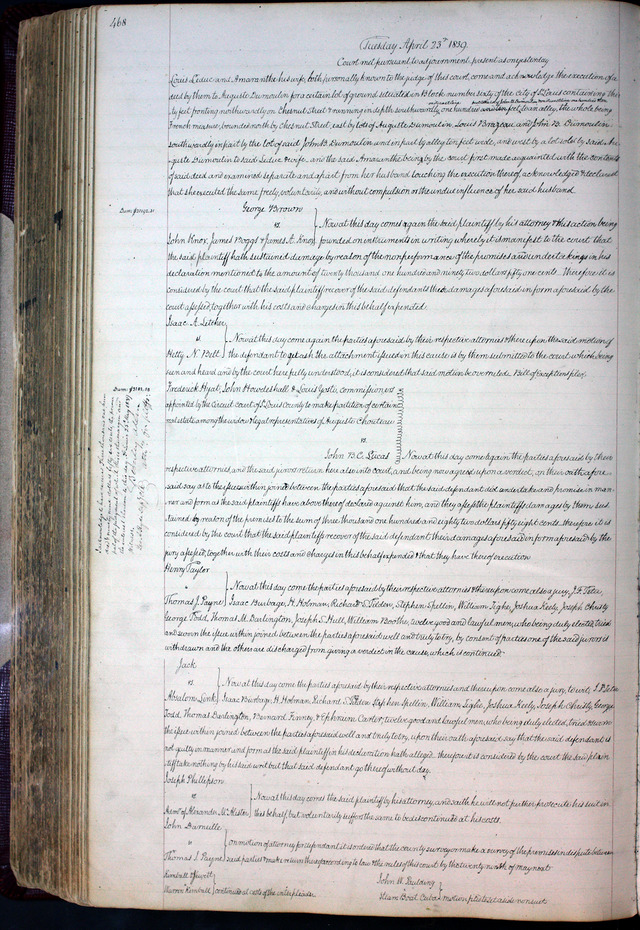 468
Tuesday April 23rd 1839
Court met pursuant to adjournment, present as on yesterday
Louis Leduc and Amaranthe his wife, both personally known to the judge of this court, come and acknowledge the execution of a
deed by them to Auguste Dumoulin for a certain lot of ground situated in Block number sixty of the City of St Louis containing
feet fronting northwardly on Chesnut Street & running in depth southwardly one hundred feet to an alley, the whole being
French measure, bounded north by Chesnut Street, east by lots of Auguste Dumoulin, Louis Brazeau and John B. Dumoulin
southwardly in part by the lot of said John B. Dumoulin and in part by alley ten feet wide, and west by a lot sold by said Au-
guste Dumoulin to said Leduc & wife. and the said Amaranthe being by the court first made acquainted with the contents
of said deed and examined separate and apart from her husband touching the execution thereof, acknowledged & declared
that she executed the same freely, voluntarily, and without compulsion or the undue influence of her said husband.
George & Brown
vs
Now at this day comes again the said plaintiff by his attorney & this action being
John Knox, James Boggs & James A. Knox founded on instruments in writing whereby it is manifest to the court that
the said plaintiff hath sustained damage by reason of the nonperformance of the promises and undertakings in his
declaration mentioned to the amount of twenty thousand one hundred and ninety two dollars fifty one cents. Therefore it is
considered by the court that the said plaintiff recover of the said defendants the damages aforesaid in form aforesaid by the
court assessed, together with his costs and charges in this behalf expended.
Isaac A. Letcher
vs
Now at this day come again the parties aforesaid by their respective attornies & thereupon the said motion of
Hetty N. Bell the defendant to quash the attachment issued in this cause is by them submitted to the court which being
seen and heard and by the court here fully understood, it is considered that said motion be overruled. Bill of exceptions filed.
Frederick Hyat, John Howdeshall & Louis commissioners
appointed by the circuit court of St Louis County to make partition of certain
real estate among the widow & legal representatives of Auguste Chouteau
vs
John B C. Lucas
Now at this day come again the parties aforesaid by their
respective attornies, and the said jurors return here also into court, and being now agreed upon a verdict, on their oath afore-
said say as to the issue within joined between the parties aforesaid that the said defendant did undertake and promise in man-
ner and form as the said plaintiffs have above thereof declared against him, and they assess the plaintiffs damages by them sus-
tained by reason of the premises to the sum of three thousand one hundred and eighty two dollars fifty eight cents. therefore it is
considered by the court that the said plaintiffs recover of the said defendant their damages aforesaid in form aforesaid by the
jury assessed, together with their costs and charges in this behalf expended & that they have thereof execution.
Henry Taylor
Now at this day come the parties aforesaid by their respective attornies & thereupon come also a jury,
Thomas J. Payne Isaac Burbage, H. Holman, Richard S. Tilden, Stephen Spellen, William Tighe, Joshua Keely, Joseph Christy
George Todd, Thomas M. Darlington, Joseph S. Hull, William Boothe, twelve good and lawful men, who being duly elected, tried
and sworn the issue within joined between the parties aforesaid well and truly to try, by consent of parties one of the said jurors is
withdrawn and the others are discharged from giving a verdict in the cause, which is continued.
Jack
vs
Now at this day come the parties aforesaid by their respective attornies and thereupon come also a jury, to wit,
Absolom Link Isaac Burbage, H. Holman, Richard S. Tilden, Stephen Spellin, William Tighe, Joshua Keely, Joseph Christy, George
Todd, Thomas Darlington, Bernard Finney & Ephraim Carter, twelve good and lawful men, who being duly elected, tried & sworn
the issue within joined between the parties aforesaid well and truly to try, upon their oath aforesaid say that the said defendant is
not guilty in manner and form as the said plaintiff in his declaration hath alleged. therefore it is considered by the court the said plain
tiff take nothing by his said writ but that said defendant go thereof without day.
Joseph Phillipson
vs
Now at this day comes the said plaintiff by his attorney, and saith he will not further prosecute his suit in
Admr of Alexander McAlister, this behalf, but voluntarily suffers the same to be discontinued at his costs.
John Darneille
vs
on motion of attorney for defendant it is ordered that the county surveyor make a survey of the premises in dispute between
Thomas J. Payne said parties & make return thereof according to law & the rules of this court by the twenty ninth of may next
Kimball & Jewett
vs
Warren Kimball continued at costs of the interpleader
John W. Paulding
vs
Steam Boat Cuba motion filed to set aside nonsuit